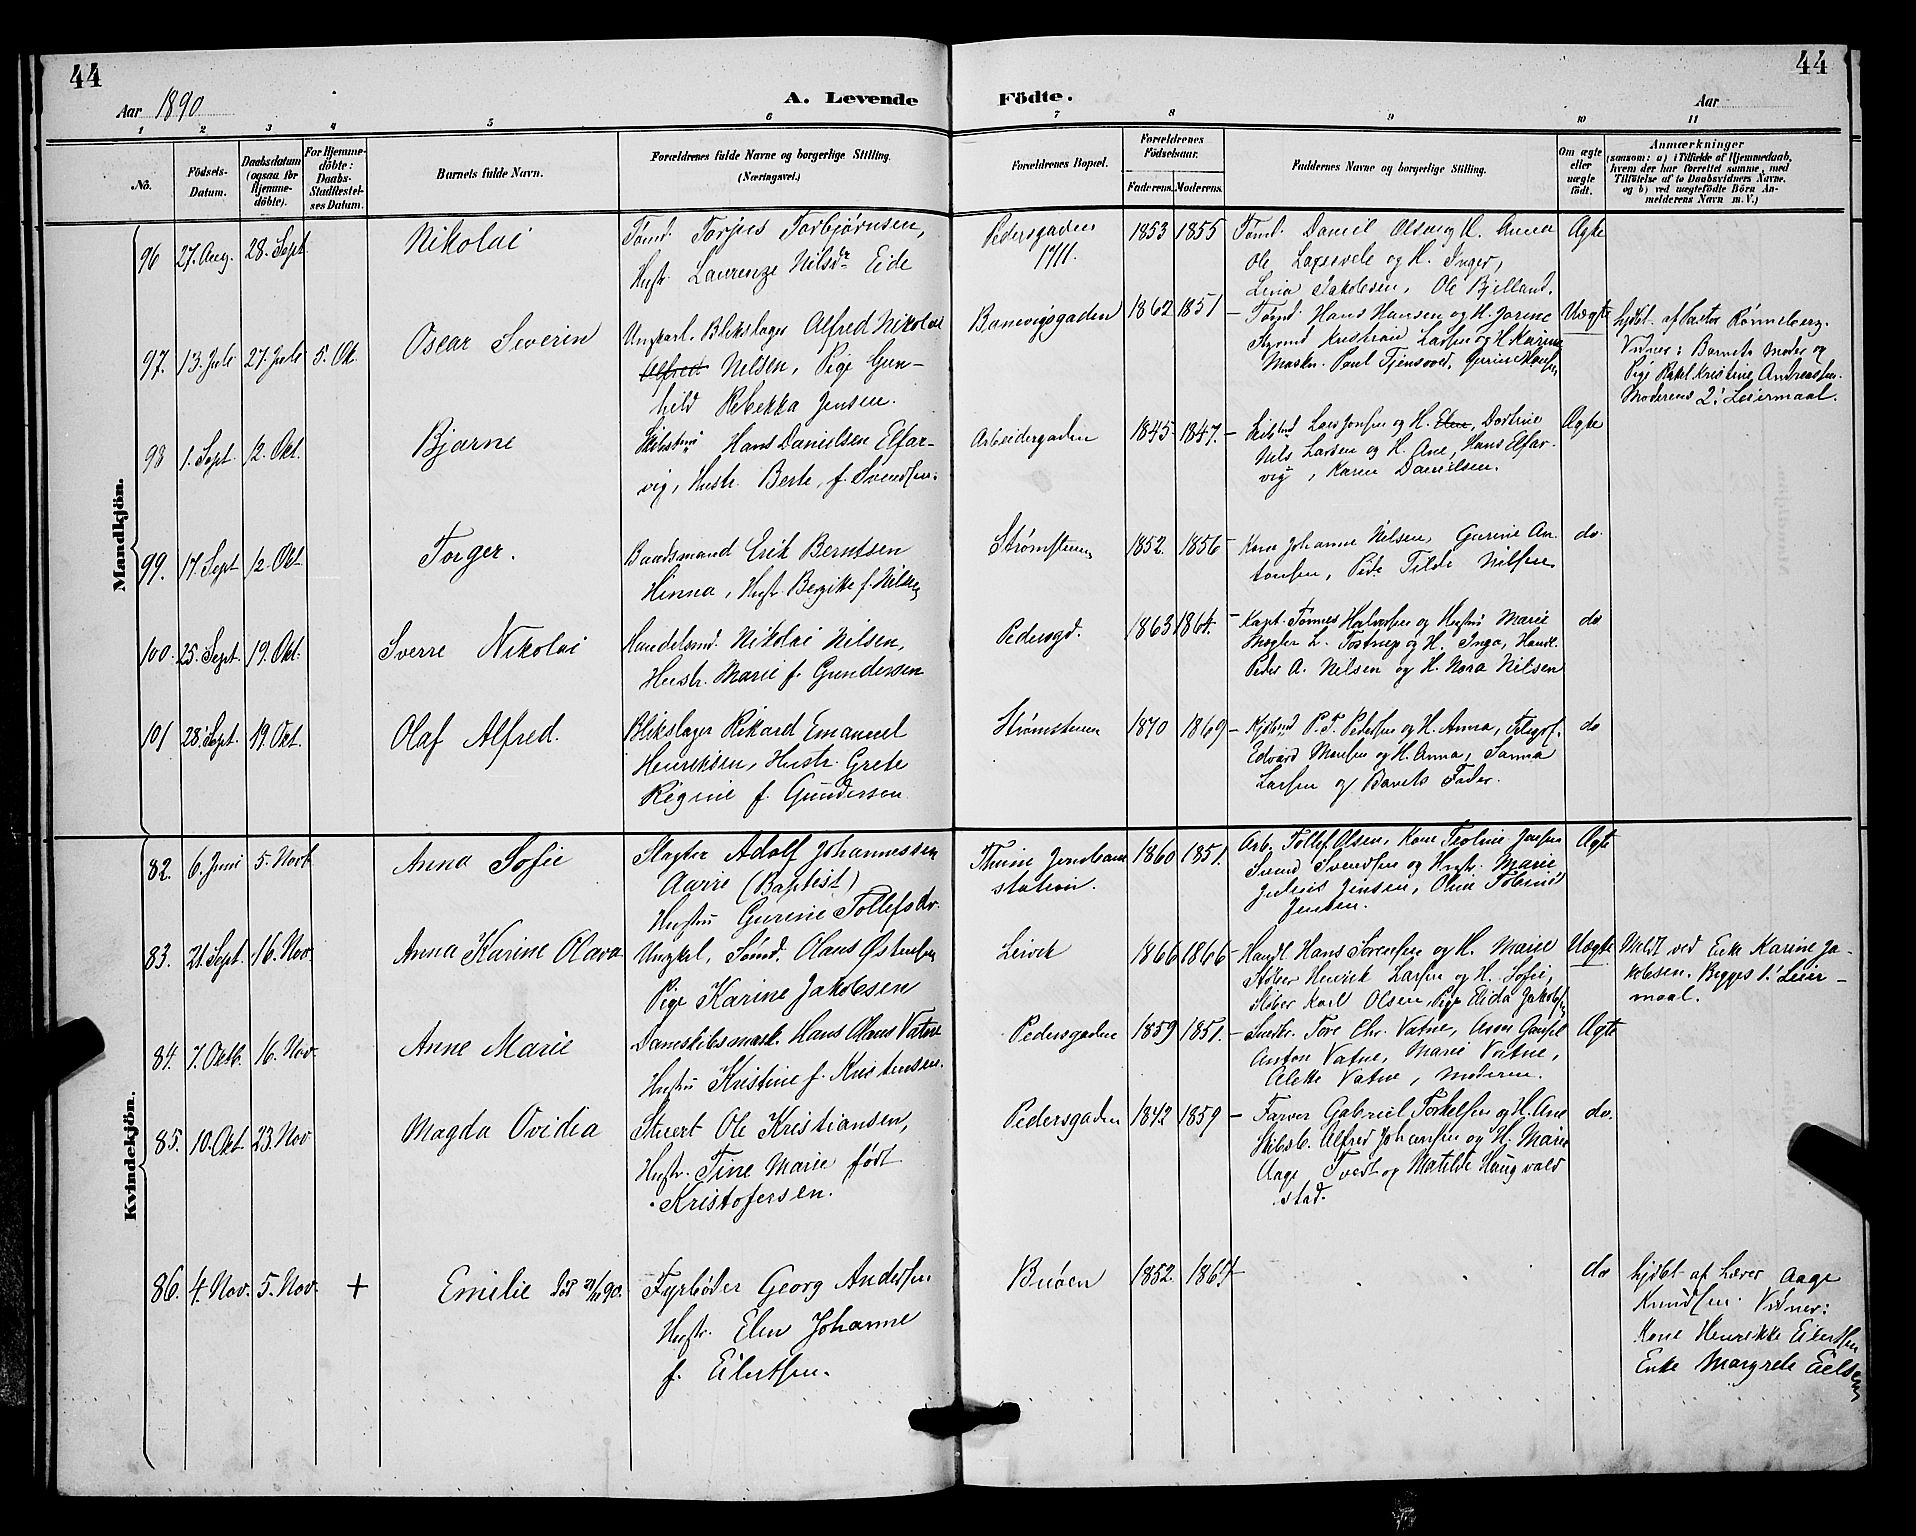 44
44
Aar 1890
A. Levende Födte.
Aar
1 2 3 4 5 6 7 8 9 10 11
No.
Födsels-Datum.
Daabsdatum (ogsaa for Hjemme-döbte).
For Hjemme-döbte: Daabs-Stadfæstel-ses Datum.
Barnets fulde Navn.
Forældrenes fulde Navne og borgerlige Stilling. (Næringsvei.)
Forældrenes Bopæl.
Forældrenes Födselsaar.
Faderens. Moderens.
Faddernes Navne og borgerlige Stilling.
Om ægte eller uægte födt.
Anmærkninger
(saasom: a) i Tilfælde af Hjemmedaab, hvem der har forrettet samme, med Tilföielse af to Daabsvidners Navne, og b) ved uægtefödte Börn An-melderens Navn m. V.)
Mandkjön.
96 27. Aug. 28. Sept. Nikolai
Tømd. Torjus Torbjørnsen,
Hustr. Laurenze Nilsdr Eide
Pedersgaden
1711.
1853 1855
Tømd. Daniel Olsen og H. Anna
Ole og H. Inger,
Lina Jakobsen, Ole Bjelland.
Ægte
97. 13. Juli 27. Juli 5. Ok. Oscar Severin
Ungkarl. Blikslager Alfred Nikolai
Alfred Nilsen, Pige Gun-
hild Rebekka Jensen.
Banevigsgaden 1862 1851
Tømd. Hans Hansen og H. Jorine
Kristian Larsen og H. Karine
Maskn. Paul Tjensvold, Gurine Hansen
Uægte
hjdbt. af Pastor Rønneberg.
Vidner: Barnets Moder og
Pige Rakel Kristine Andreassen.
Moderens 2. Leiermaal.
98 1. Sept. 12. Okt. Bjarne
Hans Danielsen Elfar-
vig, Hustr. Berte, f. Svendsen.
Arbeidergaden 1845 1847.
Lars Jonsen og H. Dortine
Nils Larsen og H. Ane, Hans Elfar-
vig, Karen Danielsen.
Ægte
99. 17. Sept 12. Okt Torger.
Baadsmand Erik Berntsen
Hinna, Hustr. f. Nilsen
Strømsteen 1852. 1856
Kone Johanne Nilsen, Gurine An-
tonsen, Tilde Nilsen
do.
100. 25. Sept. 19. Okt. Sverre Nikolai
Handelsmd. Nikolai Nilsen,
Hustr. Marie f. Gundersen
Pedersgd. 1863 1864.
Kapt. Tønnes Halvorsen og Hustru Marie
Mægler L. Tostrup og H. Inga, Handl.
Peder A. Nilsen og H. Nora Nilsen
do
101 28. Sept. 19. Okt. Olaf Alfred.
Blikslager Rikard Emanuel
Henriksen, Hustr. Grete
Regine f. Gundersen
Strømstenen 1870 1869
P. T. Pedersen og H. Anna,
Edvard og H. Anna, Sanna
Larsen og Barnets Fader.
do
Kvindekjön.
82. 6. Juni 5. Anna Sofie
Slagter Adolf Johannessen
Aarre (Baptist)
Hustru Gurine Tollefsdr.
Jernbane
station.
1860 1851.
Arb. Tollef Olsen, Kone Teoline Jensen
Svend Svendsen og Hustr. Marie
Julius Jensen, Oline Tobine
Jensen.
Ægte
83. 21. Sept. 16. Nov. Anna Karine Olava
Ungkrl. Sømd. Olaus Østensen
Pige Karine Jakobsen
Leivik 1866 1866
Handl Hans Sørensen og H. Marie
Støber Henrik Larsen og H. Sofie,
Støber Karl Olsen, Pige Jakobsen
Uægte
Meldt ved Enke Karine Ja-
kobsen. Begges 1. Leier-
maal.
84. 7. Oktb. 16. Nov. Anne Marie
Hans Olaus Vatne
Hustru Kristine f. Kristensen.
Pedersgaden 1859 1851.
Tore Chr. Vatne,
Anton Vatne, Marie Vatne,
Alette Vatne, Moderen.
Ægte
85. 10. Okt 23. Nov Magda Ovidia
Stuert Ole Kristiansen,
Hustr. Tine Marie født
Kristofersen.
Pedersgaden 1842 1859
Farver Gabriel Torkelsen og H. Ane
Skibsb. Alfred Johansen og H. Marie
Aage Tvedt og Matilde Haugvald-
stad.
do.
86. 4. Nov. 5. Nov. + Emilie
Fyrbøder Georg Andersen
Hustr. Elen Johanne
f. Eilertsen.
Buøen 1852. 1867
do
hjdbt af Lærer Aage
Knudsen. Vidner:
Kone Henrikke Eilertsen
Enke Margrete Eielsen